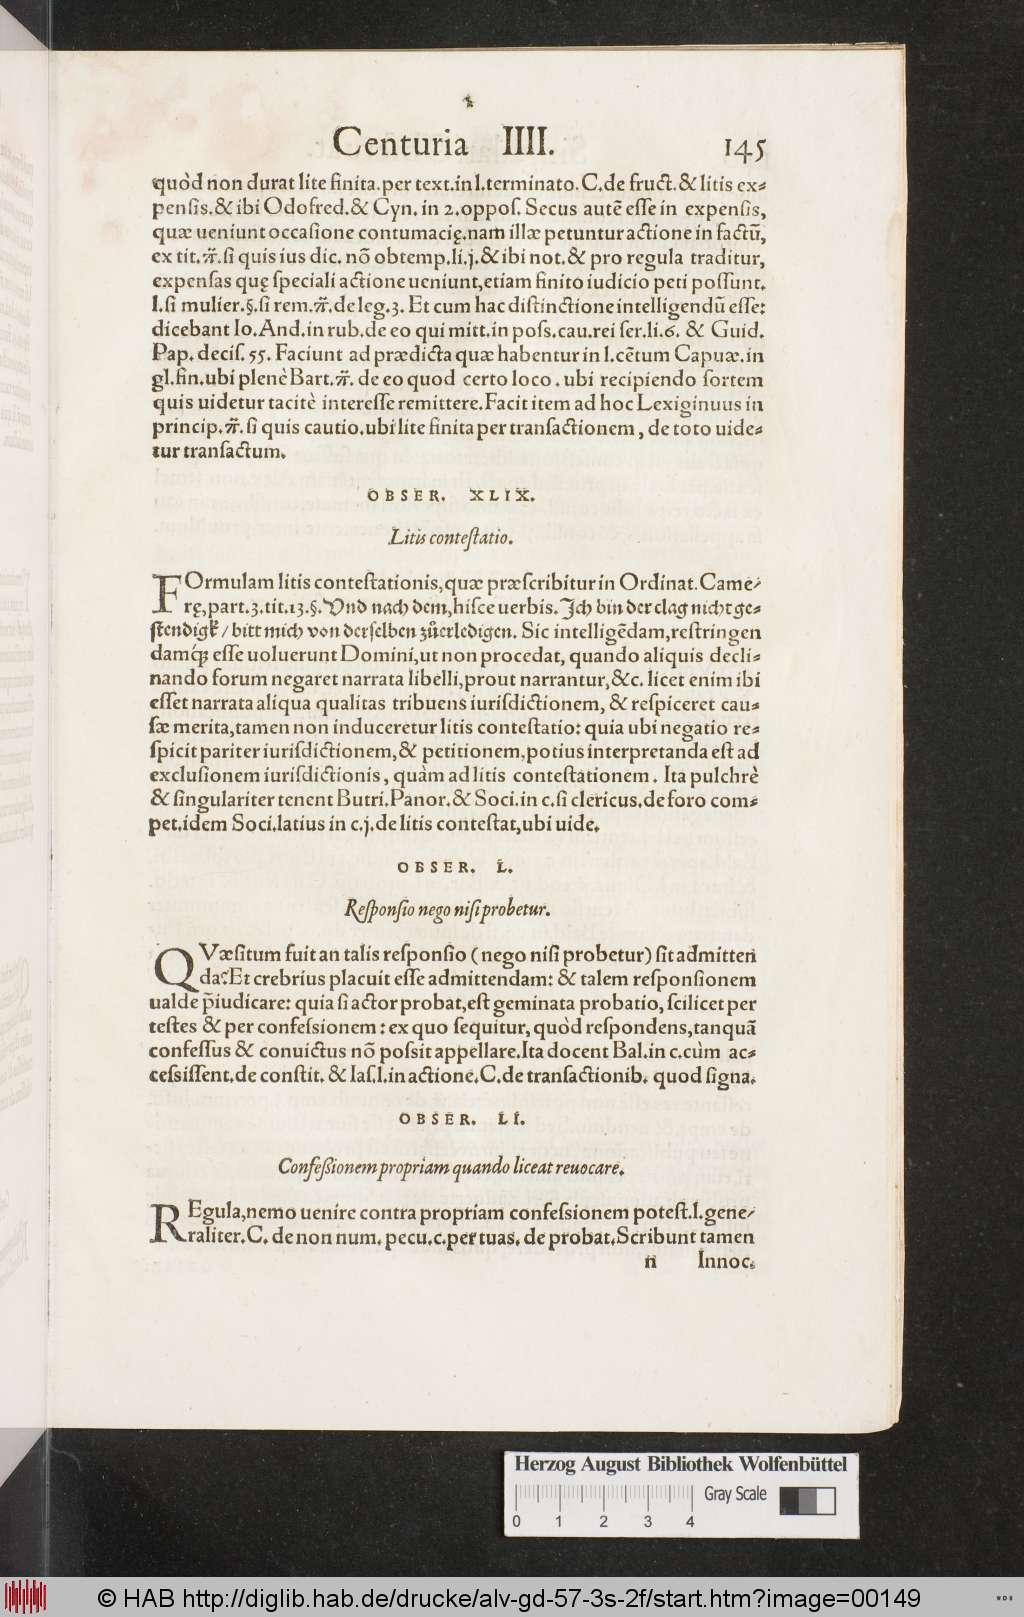 Centuria IIII. 145
quòd non durat lite finita. per text. in l. terminato. C. de fruct. & litis ex-
pensis. & ibi Odofred. & Cyn. in 2. oppos. Secus autē esse in expensis,
quæ ueniunt occasione contumacię. nam illæ petuntur actione in factū,
ex tit. ff. si quis ius dic. nō obtemp. li. j. & ibi not. & pro regula traditur,
expensas quę speciali actione ueniunt, etiam finito iudicio peti possunt.
l. si mulier. §. si rem. ff. de leg. 3. Et cum hac distinctione intelligendū esse:
dicebant Io. And. in rub. de eo qui mitt. in poss. cau. rei ser. li. 6. & Guid.
Pap. decis. 55. Faciunt ad prædicta quæ habentur in l. cētum Capuæ. in
gl. fin. ubi plenè Bart. ff. de eo quod certo loco. ubi recipiendo sortem
quis uidetur tacitè interesse remittere. Facit item ad hoc Lex iginuus in
princip. ff. si quis cautio. ubi lite finita per transactionem, de toto uide-
tur transactum.
OBSER. XLIX.
Litis contestatio.
FOrmulam litis contestationis, quæ præscribitur in Ordinat. Came-
rę, part. 3. tit. 13. §. Vnd nach dem, hisce uerbis. Ich bin der clag nicht ge-
stendig / bitt mich von derselben zůerledigen. Sic intelligēdam, restringen
damq́; esse uoluerunt Domini, ut non procedat, quando aliquis decli-
nando forum negaret narrata libelli, prout narrantur, &c. licet enim ibi
esset narrata aliqua qualitas tribuens iurisdictionem, & respiceret cau-
sæ merita, tamen non induceretur litis contestatio: quia ubi negatio re-
spicit pariter iurisdictionem, & petitionem, potius interpretanda est ad
exclusionem iurisdictionis, quàm ad litis contestationem. Ita pulchrè
& singulariter tenent Butri. Panor. & Soci. in c. si clericus. de foro com-
pet. idem Soci. latius in c. j. de litis contestat, ubi uide.
OBSER. L.
Responsio nego nisi probetur.
QVæsitum fuit an talis responsio (nego nisi probetur) sit admitten
da? Et crebrius placuit esse admittendam: & talem responsionem
ualde p̄iudicare: quia si actor probat, est geminata probatio, scilicet per
testes & per confessionem: ex quo sequitur, quòd respondens, tanquā
confessus & conuictus nō possit appellare. Ita docent Bal. in c. cùm ac-
cessissent. de constit. & Ias. l. in actione. C. de transactionib. quod signa.
OBSER. LI.
Confessionem propriam quando liceat reuocare.
REgula, nemo uenire contra propriam confessionem potest. l. gene-
raliter. C. de non num. pecu. c. per tuas. de probat. Scribunt tamen
n Innoc.
Herzog August Bibliothek Wolfenbüttel
Gray Scale
0 1 2 3 4
© HAB http://diglib.hab.de/drucke/alv-gd-57-3s-2f/start.htm?image=00149